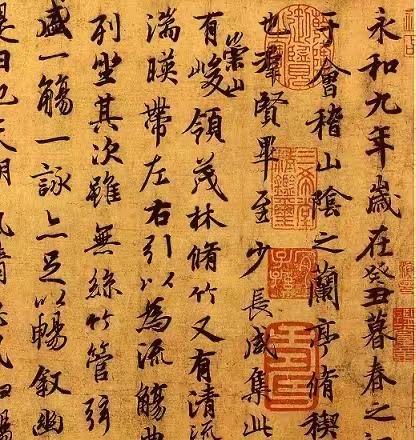 永和九年歲在癸丑暮春之初
于會稽山陰之蘭亭脩稧
也羣賢畢至少長咸集此
有崇山峻領茂林脩竹又有清流
湍暎帶左右引以為流觴曲
列坐其次雖無絲竹管弦
盛一觴一詠亦足以暢叙幽
是日也天朗氣清惠風和暢
三希堂精鑑璽
宜子孫